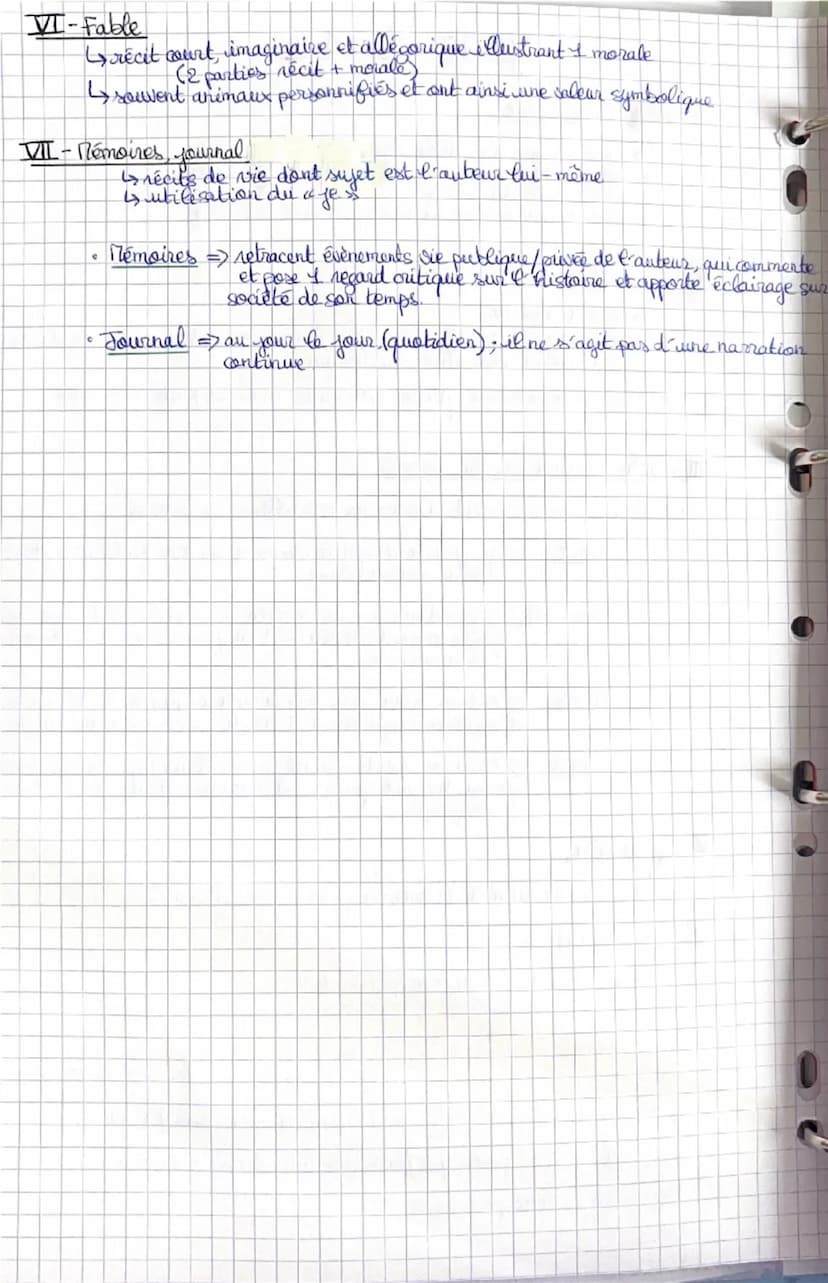 VI - Fable
↳ récit court, imaginaire et allégorique illustrant 1 morale
(2 parties récit + morale)
↳ souvent animaux personnifiés et ont ainsi une valeur symbolique
VII - Mémoires, journal
↳ récits de vie dont sujet est l'auteur lui-même
↳ utilisation du « je »
• Mémoires => retracent évènements vie publique/privée de l'auteur, qui commente
et pose 1 regard critique sur l'histoire et apporte éclairage sur
société de son temps.
• Journal => au jour le jour (quotidien) ; il ne s'agit pas d'une narration
continue